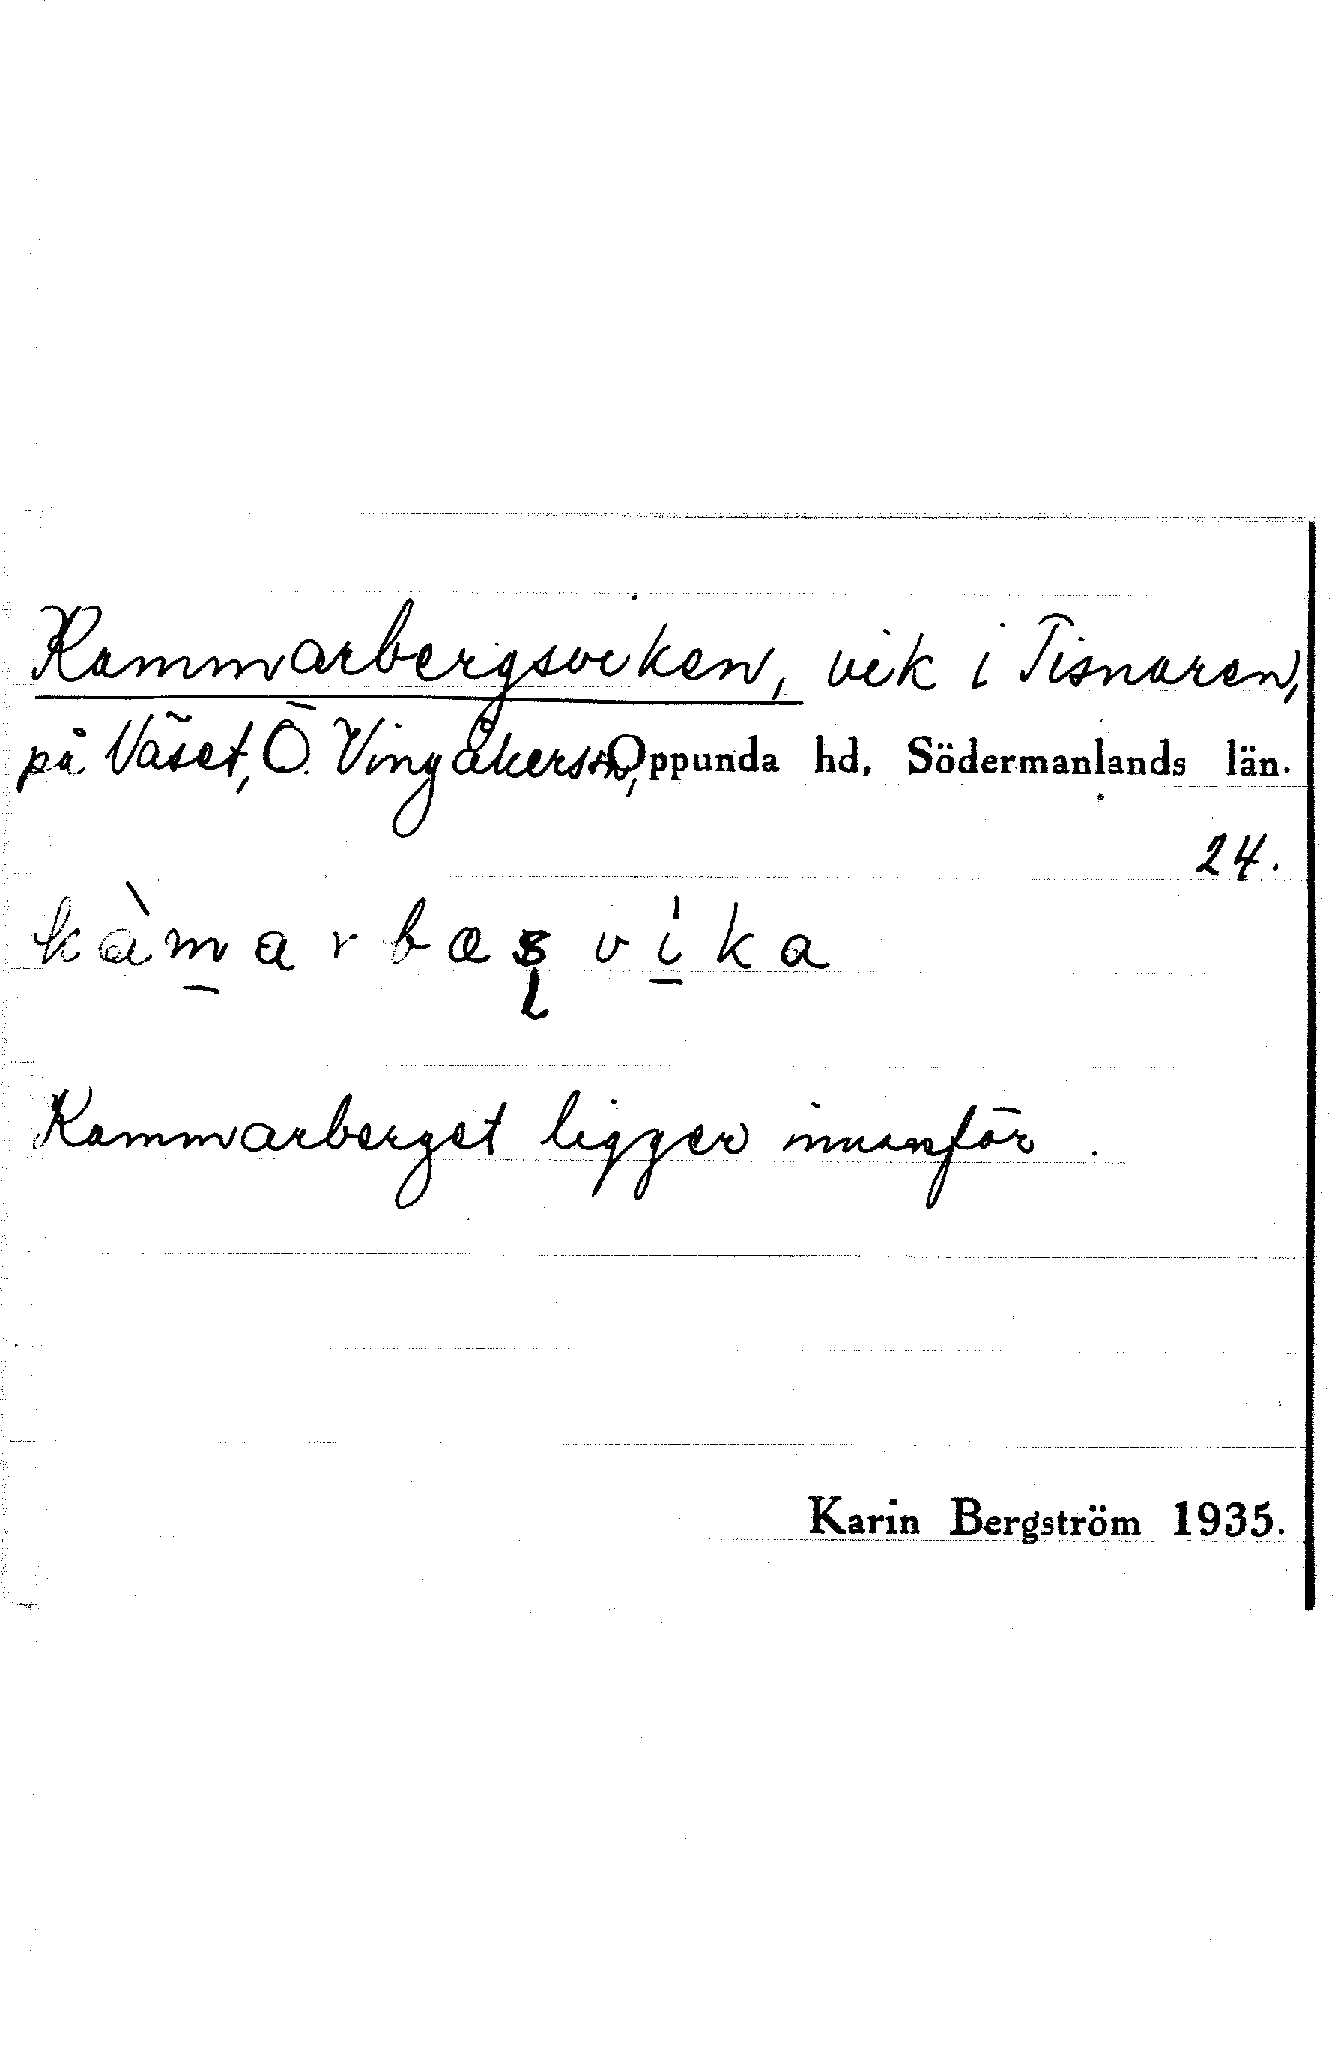 Kammarbergsviken, vik i Tisnaren,
på Väset, Ö. Vingåkers sn, Oppunda hd, Södermanlands län.
24.
kàm̠arbæʂvi̠ka
Kammarberget ligger innanför.
Karin Bergström 1935.